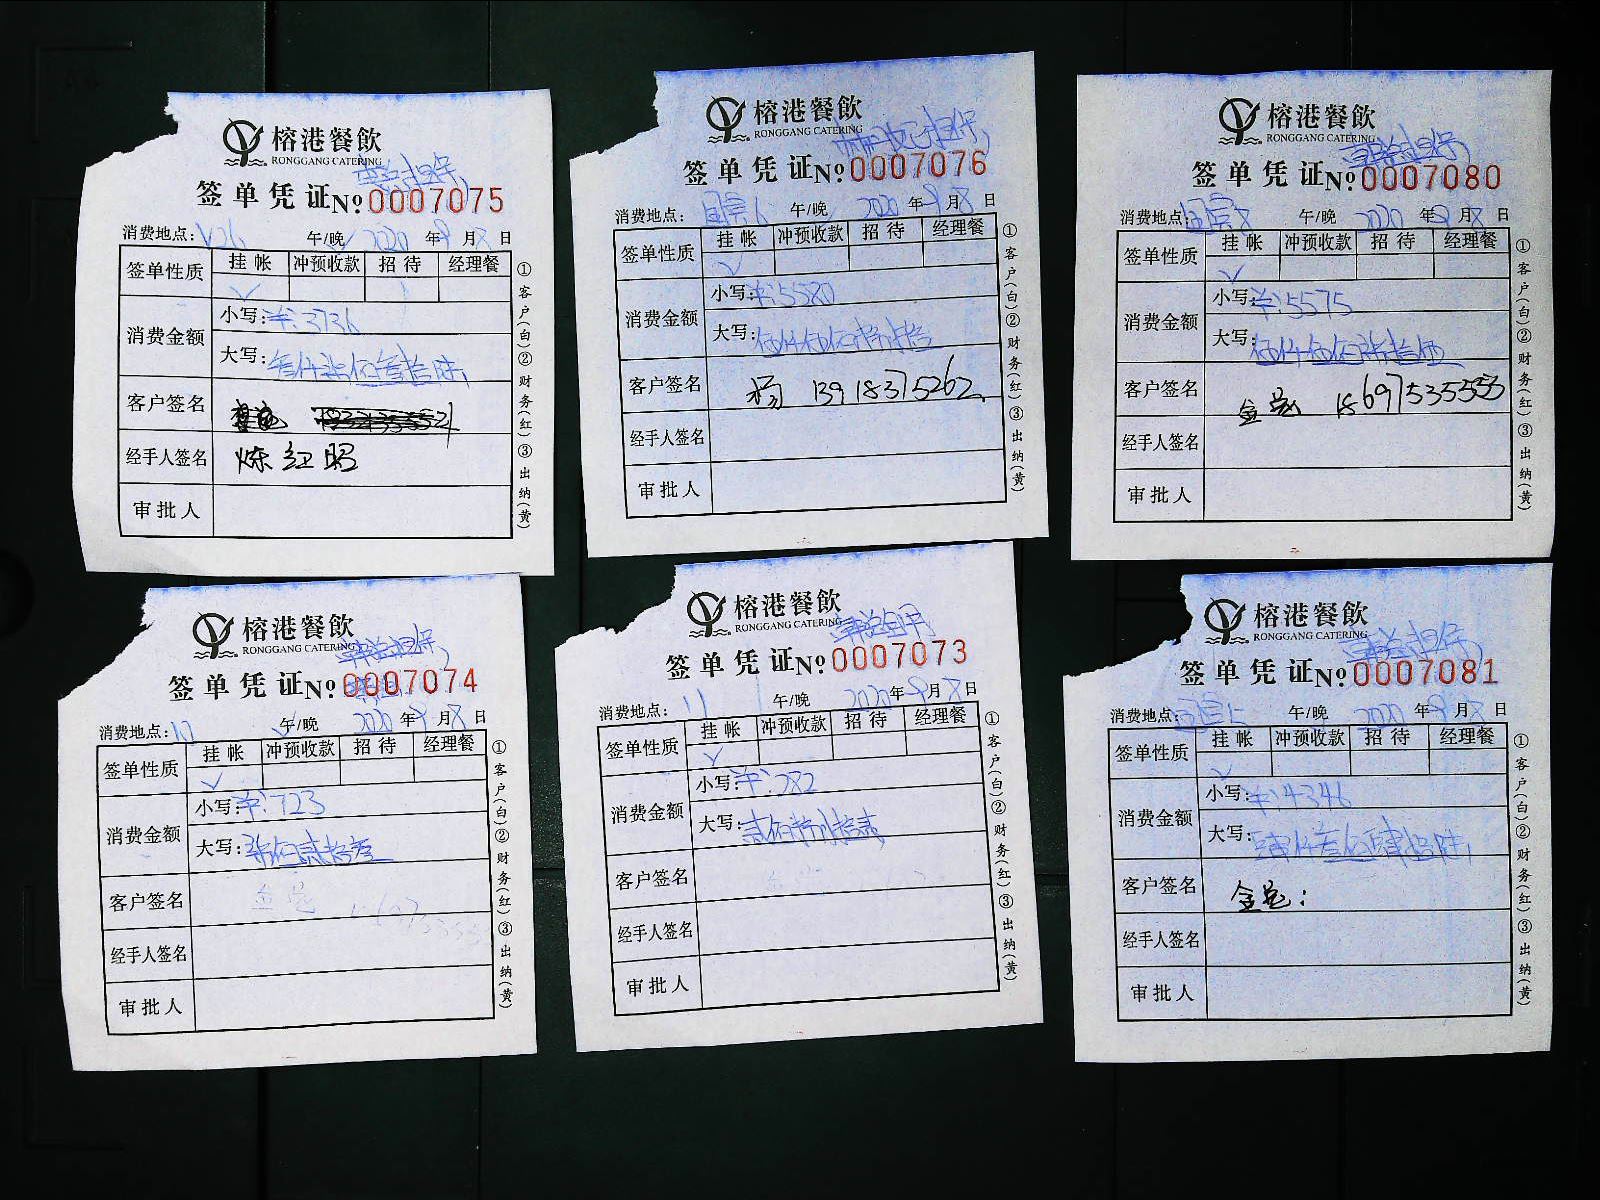 榕港餐飲
RONGGANG CATERING
担保
签单凭证 No 0007075
消费地点: V26 午/晚 2020 年 9 月 8 日
签单性质 挂帐 冲预收款 招待 经理餐
消费金额
小写: ¥:3736
大写: 叁仟柒佰叁拾陆
客户签名
经手人签名 炼红昭
审批人
①客户(白)②财务(红)③出纳(黄)
榕港餐飲
RONGGANG CATERING
担保
签单凭证 No 0007076
消费地点: 国宾6 午/晚 2020 年 9 月 8 日
签单性质 挂帐 冲预收款 招待 经理餐
消费金额
小写: ¥:5580
大写: 伍仟伍佰捌拾
客户签名 杨 13918375262
经手人签名
审批人
①客户(白)②财务(红)③出纳(黄)
榕港餐飲
RONGGANG CATERING
担保
签单凭证 No 0007080
消费地点: 国宾8 午/晚 2020 年 9 月 8 日
签单性质 挂帐 冲预收款 招待 经理餐
消费金额
小写: ¥:5575
大写: 伍仟伍佰柒拾伍
客户签名 金总 18697535553
经手人签名
审批人
①客户(白)②财务(红)③出纳(黄)
榕港餐飲
RONGGANG CATERING
担保
签单凭证 No 0007074
消费地点: 午/晚 2020 年 9 月 8 日
签单性质 挂帐 冲预收款 招待 经理餐
消费金额
小写: ¥:723
大写: 柒佰贰拾叁
客户签名 金总
经手人签名
审批人
①客户(白)②财务(红)③出纳(黄)
榕港餐飲
RONGGANG CATERING
签单凭证 No 0007073
消费地点: 11 午/晚 2020 年 9 月 8 日
签单性质 挂帐 冲预收款 招待 经理餐
消费金额
小写: ¥:282
大写: 贰佰捌拾贰
客户签名
经手人签名
审批人
①客户(白)②财务(红)③出纳(黄)
榕港餐飲
RONGGANG CATERING
担保
签单凭证 No 0007081
消费地点: 午/晚 2020 年 9 月 8 日
签单性质 挂帐 冲预收款 招待 经理餐
消费金额
小写: ¥:4346
大写: 肆仟叁佰肆拾陆
客户签名 金总:
经手人签名
审批人
①客户(白)②财务(红)③出纳(黄)